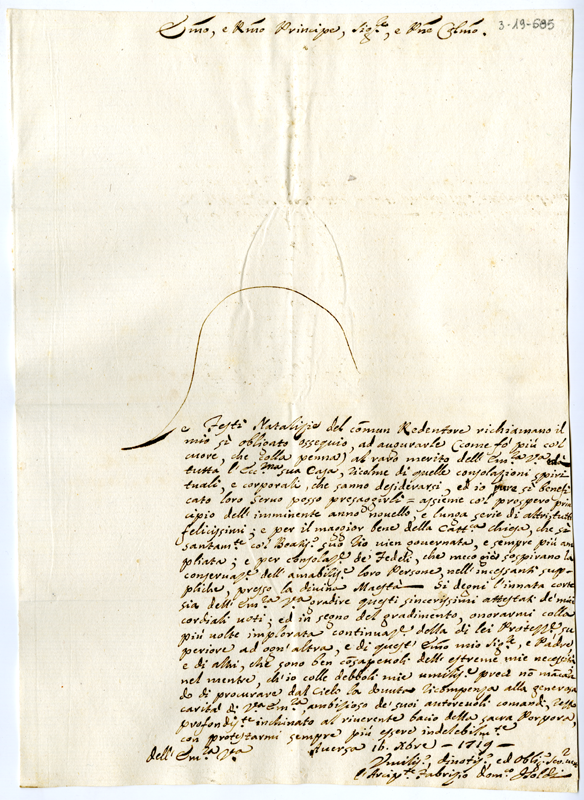 3-19-685
Emo, e Rmo Principe, Sigre, e Pne Colmo.
Le Feste Natalizie del comun Redentore richiamano il
mio sì obligato ossequio, ad augurarle (come fò più col
cuore, che colla penna) al raro merito dell' Emza Va, ed à
tutta l' sua Casa, ricolme di quelle consolazioni spiri-
tuali, e corporali, che sanno desiderarsi, ed io pure sì benefi-
cato loro servo posso presagirli = assieme col prospero prin-
cipio dell' imminente anno novello, e lunga serie di altri tutti
felicissimi; e per il maggior bene della Cattca chiesa, che sì
santamte col suo Zio vien governata, e sempre più am-
pliata; e per consolaze de' Fedeli, che meco sospirano la
conservaze dell' amabilisse loro Persone, nell' incessanti sup-
pliche, presso la divina Maestà — Si degni l'innata corte-
sia dell' Emza Va gradire questi sincerissimi attestati de' miei
cordiali voti; ed in segno del gradimento, onorarmi colla
più volte implorata continuaze della di lei Protezze su-
periore ad ogn' altra, e di quest' Emo mio Sigre, e Padre,
e di altri, che sono ben consapevoli dell' estreme mie necessità
nel mentre, ch'io colle debboli mie umilisse preci nò manca-
do di procurare dal Cielo la dovuta ricompensa alla generosa
carità di Va Emza, ambizioso de' suoi autorevoli comandi, resto
profondte inchinato al riverente bacio della sacra Porpora,
con protestarmi sempre più essere indelebilmte
dell' Emza Va Aversa 16. Xbre — 1719 —
Umilisso, divotisso, ed Obligo Servre
l' Fabrizio Domco